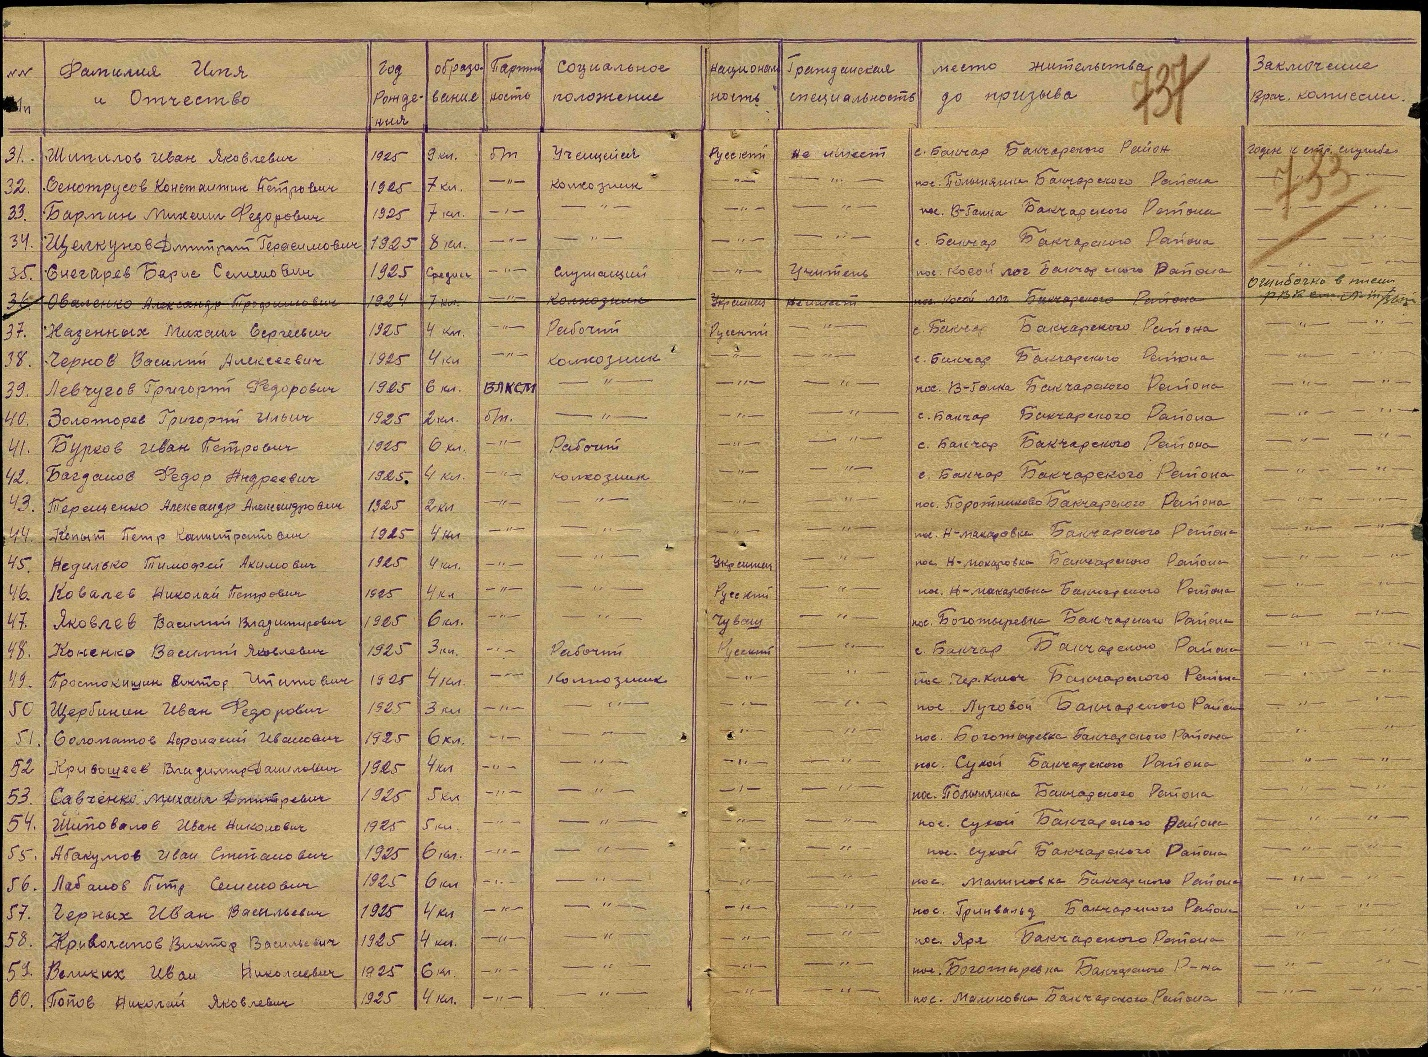 №№ п/п Фамилия Имя и Отчество Год Рождения образование Партийность Социальное положение Национальность Гражданская специальность место жительства до призыва Заключение Врач. комиссии.
737
31. Шипилов Иван Яковлевич 1925 9 кл. б/п Учащийся Русский не имеет с. Бакчар Бакчарского Район Годен к стр. службе
32. Сенотрусов Константин Петрович 1925 7 кл. —"— колхозник —"— —"— пос. Полынянка Бакчарского Района
733
33. Бармин Михаил Федорович 1925 7 кл. —"— —"— —"— —"— пос. В-Галка Бакчарского Района —"—
34. Щелкунов Дмитрий Герасимович 1925 8 кл. —"— —"— —"— —"— с. Бакчар Бакчарского Района —"—
35. Снегарев Барис Семенович 1925 Средн. —"— Служащий —"— Учитель пос. Косой лог Бакчарского Района —"—
36. Ованенко Александр Трофимович 1924 7 кл. —"— Колхозник Украинец не имеет пос. Косой лог Бакчарского Района Ошибочно в писан
37. Казенных Михаил Сергеевич 1925 4 кл. —"— Рабочий Русский —"— с. Бакчар Бакчарского Района —"— —"—
38. Чернов Василий Алексеевич 1925 4 кл —"— колхозник —"— —"— с. Бакчар Бакчарского Района —"— —"—
39. Левчугов Григорий Федорович 1925 6 кл. ВЛКСМ —"— —"— —"— пос. В-Галка Бакчарского Района —"— —"—
40. Золоторев Григорий Ильич 1925 2 кл. б/п. —"— —"— —"— с. Бакчар Бакчарского Района —"— —"—
41. Бурков Иван Петрович 1925 6 кл. —"— Рабочий —"— —"— с. Бакчар Бакчарского Района —"— —"—
42. Багданов Федор Андреевич 1925. 4 кл. —"— колхозник —"— —"— с. Бакчар Бакчарского Района —"— —"—
43. Терещенко Александр Александрович 1925 2 кл —"— —"— —"— —"— пос. Поротниково Бакчарского Района —"— —"—
44. Копыт Петр 1925 4 кл —"— —"— —"— —"— пос. Н-макаровка Бакчарского Района —"— —"—
45. Недилько Тимофей Акимович 1925 4 кл. —"— —"— Украинец —"— пос. Н-макаровка Бакчарского Района —"— —"—
46. Ковалев Николай Петрович 1925 4 кл —"— —"— Русский —"— пос. Н-макаровка Бакчарского Района —"— —"—
47. Яковлев Василий Владимирович 1925 6 кл. —"— —"— Чуваш —"— пос. Боготыревка Бакчарского Района —"— —"—
48. Коненко Василий Яковлевич 1925 3 кл. —"— Рабочий Русский —"— с Бакчар Бакчарского Района —"— —"—
49. Простокишин Виктор 1925 4 кл. —"— Колхозник —"— —"— пос. Чер. Ключ Бакчарского Района —"— —"—
50 Щербинин Иван Федорович 1925 3 кл —"— —"— —"— —"— пос. Луговой Бакчарского Района —"— —"—
51. Соломатов Афонасий Иванович 1925 6 кл. —"— —"— —"— —"— пос. Боготыревка Бакчарского Района —"— —"—
52 Кривошеев Владимир Данилович 1925 4 кл —"— —"— —"— —"— пос. Сухой Бакчарского Района —"— —"—
53. Савченко Михаил Дмитревич 1925 5 кл —"— —"— —"— —"— пос. Полынянка Бакчарского Района —"— —"—
54. Шиповалов Иван Николович 1925 5 кл. —"— —"— —"— —"— пос. Сухой Бакчарского Района —"— —"—
55. Абакумов Иван Степанович 1925 6 кл. —"— —"— —"— —"— пос. Сухой Бакчарского Района —"— —"—
56. Лабанов Петр Семенович 1925 6 кл —"— —"— —"— —"— пос. Малиновка Бакчарского Района —"— —"—
57. Черных Иван Васильевич 1925 4 кл —"— —"— —"— —"— пос. Гринвальд Бакчарского Района —"— —"—
58. Криволапов Виктор Васильевич 1925 4 кл. —"— —"— —"— —"— пос. Яря Бакчарского Района —"— —"—
59. Великих Иван Николаевич 1925 6 кл. —"— —"— —"— —"— пос. Боготыревка Бакчарского Р-на —"— —"—
60. Попов Николай Яковлевич 1925 4 кл. —"— —"— —"— —"— пос. Малиновка Бакчарского Района —"— —"—